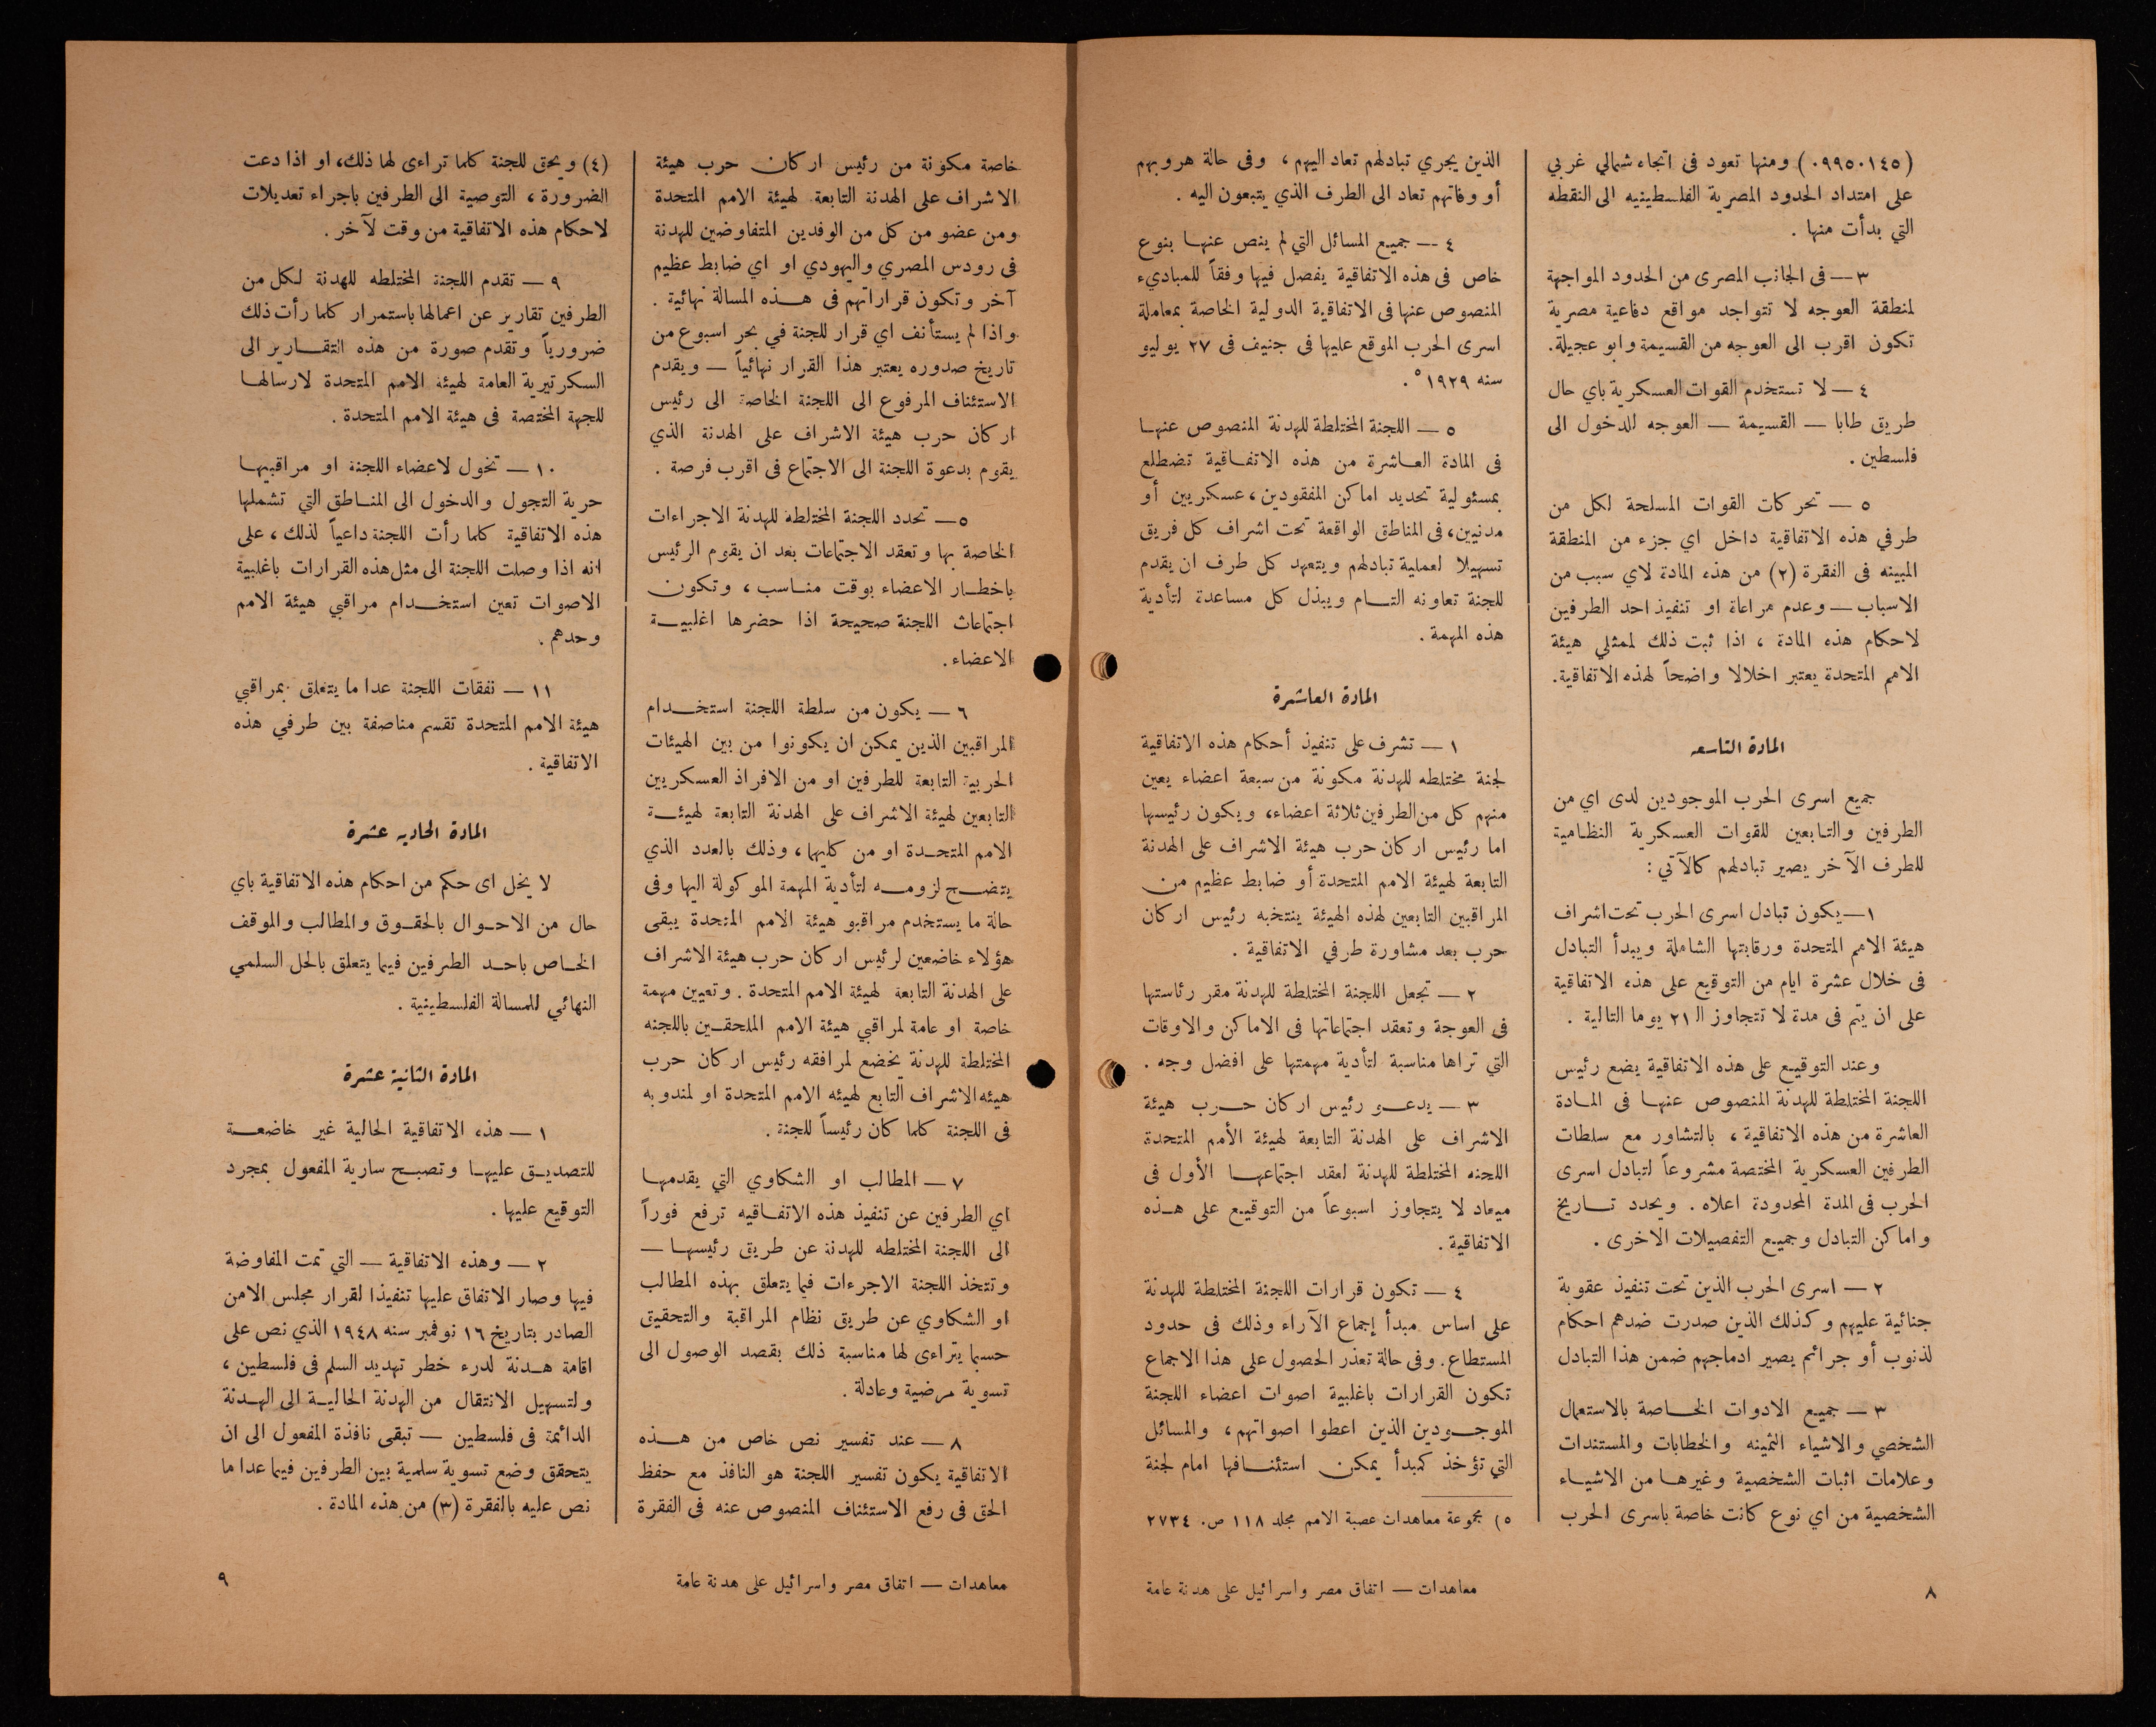 (٠٩٩٥٠١٤٥) ومنها تعود فى اتجاه شمالي غربي
على امتداد الحدود المصرية الفلسطينيه الى النقطه
التي بدأت منها .
٣ — فى الجانب المصرى من الحدود المواجهة
لمنطقة العوجه لا تتواجد مواقع دفاعية مصرية
تكون اقرب الى العوجه من القسيمة وابو عجيلة.
٤ — لا تستخدم القوات العسكرية باي حال
طريق طابا — القسيمة — العوجه للدخول الى
فلسطين .
٥ — تحركات القوات المسلحة لكل من
طرفي هذه الاتفاقية داخل اي جزء من المنطقة
المبينه فى الفقرة (٢) من هذه المادة لاي سبب من
الاسباب — وعدم مراعاة او تنفيذ احد الطرفين
لاحكام هذه المادة ، اذا ثبت ذلك لممثلي هيئة
الامم المتحدة يعتبر اخلالا واضحاً لهذه الاتفاقية.
المادة التاسعه
جميع اسرى الحرب الموجودين لدى اي من
الطرفين والتابعين للقوات العسكرية النظامية
للطرف الآخر يصير تبادلهم كالآتي :
١—يكون تبادل اسرى الحرب تحت اشراف
هيئة الامم المتحدة ورقابتها الشاملة ويبدأ التبادل
فى خلال عشرة ايام من التوقيع على هذه الاتفاقية
على ان يتم فى مدة لا تتجاوز ال ٢١ يوما التالية .
وعند التوقيع على هذه الاتفاقية يضع رئيس
اللجنة المختلطة للهدنة المنصوص عنها فى المادة
العاشرة من هذه الاتفاقية ، بالتشاور مع سلطات
الطرفين العسكرية المختصة مشروعاً لتبادل اسرى
الحرب فى المدة المحدودة اعلاه . ويحدد تاريخ
واماكن التبادل وجميع التفصيلات الاخرى .
٢ — اسرى الحرب الذين تحت تنفيذ عقوبة
جنائية عليهم وكذلك الذين صدرت ضدهم احكام
لذنوب أو جرائم يصير ادماجهم ضمن هذا التبادل
٣ — جميع الادوات الخاصة بالاستعمال
الشخصي والاشياء الثمينه والخطابات والمستندات
وعلامات اثبات الشخصية وغيرها من الاشياء
الشخصية من اي نوع كانت خاصة باسرى الحرب
الذين يجري تبادلهم تعاد اليهم ، وفى حالة هروبهم
أو وفاتهم تعاد الى الطرف الذي يتبعون اليه .
٤ — جميع المسائل التي لم ينص عنها بنوع
خاص فى هذه الاتفاقية يفصل فيها وفقاً للمباديء
المنصوص عنها فى الاتفاقية الدولية الخاصة بمعاملة
اسرى الحرب الموقع عليها فى جنيف فى ٢٧ يوليو
سنه ١٩٢٩ ٥ .
٥ — اللجنة المختلطة للهدنة المنصوص عنها
فى المادة العاشرة من هذه الاتفاقية تضطلع
بمسئولية تحديد اماكن المفقودين ، عسكريين أو
مدنيين، فى المناطق الواقعة تحت اشراف كل فريق
تسهيلا لعملية تبادلهم ويتعهد كل طرف ان يقدم
للجنة تعاونه التام ويبذل كل مساعدة لتأدية
هذه المهمة .
المادة العاشرة
١ — تشرف على تنفيذ أحكام هذه الاتفاقية
لجنة مختلطه للهدنة مكونة من سبعة اعضاء يعين
منهم كل من الطرفين ثلاثة اعضاء، ويكون رئيسها
اما رئيس اركان حرب هيئة الاشراف على الهدنة
التابعة لهيئة الامم المتحدة أو ضابط عظيم من
المراقبين التابعين لهذه الهيئة ينتخبه رئيس اركان
حرب بعد مشاورة طرفي الاتفاقية .
٢ — تجعل اللجنة المختلطة للهدنة مقر رئاستها
فى العوجة وتعقد اجتماعاتها فى الاماكن والاوقات
التي تراها مناسبة لتأدية مهمتها على افضل وجه .
٣ — يدعو رئيس اركان حرب هيئة
الاشراف على الهدنة التابعة لهيئة الأمم المتحدة
اللجنه المختلطة للهدنة لعقد اجتماعها الأول فى
ميعاد لا يتجاوز اسبوعاً من التوقيع على هذه
الاتفاقية .
٤ — تكون قرارات اللجنة المختلطة للهدنة
على اساس مبدأ إجماع الآراء وذلك فى حدود
المستطاع . وفى حالة تعذر الحصول على هذا الاجماع
تكون القرارات باغلبية اصوات اعضاء اللجنة
الموجودين الذين اعطوا اصواتهم ، والمسائل
التي تؤخذ كمبدأ يمكن استئنافها امام لجنة
٥) مجموعة معاهدات عصبة الامم مجلد ١١٨ ص. ٢٧٣٤
معاهدات — اتفاق مصر واسرائيل على هدنة عامة
٨
خاصة مكونة من رئيس اركان حرب هيئة
الاشراف على الهدنة التابعة لهيئة الامم المتحدة
ومن عضو من كل من الوفدين المتفاوضين للهدنة
فى رودس المصري واليهودي او اي ضابط عظيم
آخر وتكون قراراتهم فى هذه المسالة نهائية .
واذا لم يستأنف اي قرار للجنة في بحر اسبوع من
تاريخ صدوره يعتبر هذا القرار نهائياً — ويقدم
الاستئناف المرفوع الى اللجنة الخاصة الى رئيس
اركان حرب هيئة الاشراف على الهدنة الذي
يقوم بدعوة اللجنة الى الاجتماع فى اقرب فرصة .
٥ — تحدد اللجنة المختلطه للهدنة الاجراءات
الخاصة بها وتعقد الاجتماعات بعد ان يقوم الرئيس
باخطار الاعضاء بوقت مناسب ، وتكون
اجتماعات اللجنة صحيحة اذا حضرها اغلبية
الاعضاء .
٦ — يكون من سلطة اللجنة استخدام
المراقبين الذين يمكن ان يكونوا من بين الهيئات
الحربية التابعة للطرفين او من الافراد العسكريين
التابعين لهيئة الاشراف على الهدنة التابعة لهيئة
الامم المتحدة او من كليهما ، وذلك بالعدد الذي
يتضح لزومه لتأدية المهمة الموكولة اليها وفى
حالة ما يستخدم مراقبو هيئة الامم المتحدة يبقى
هؤلاء خاضعين لرئيس اركان حرب هيئة الاشراف
على الهدنة التابعة لهيئة الامم المتحدة . وتعيين مهمة
خاصة او عامة لمراقبي هيئة الامم الملحقين باللجنه
المختلطة للهدنة يخضع لمرافقه رئيس اركان حرب
هيئه الاشراف التابع لهيئه الامم المتحدة او لمندوبه
فى اللجنة كلما كان رئيساً للجنة .
٧ — المطالب او الشكاوي التي يقدمها
اي الطرفين عن تنفيذ هذه الاتفاقيه ترفع فوراً
الى اللجنة المختلطه للهدنة عن طريق رئيسها —
وتتخذ اللجنة الاجرءات فيما يتعلق بهذه المطالب
او الشكاوي عن طريق نظام المراقبة والتحقيق
حسبما يتراءى لها مناسبة ذلك بقصد الوصول الى
تسوية مرضية وعادلة .
٨ — عند تفسير نص خاص من هذه
الاتفاقية يكون تفسير اللجنة هو النافذ مع حفظ
الحق فى رفع الاستئناف المنصوص عنه فى الفقرة
(٤) ويحق للجنة كلما تراءى لها ذلك، او اذا دعت
الضرورة ، التوصية الى الطرفين باجراء تعديلات
لاحكام هذه الاتفاقية من وقت لآخر .
٩ — تقدم اللجنة المختلطه للهدنة لكل من
الطرفين تقارير عن اعمالها باستمرار كلما رأت ذلك
ضرورياً وتقدم صورة من هذه التقارير الى
السكرتيرية العامة لهيئة الامم المتحدة لارسالها
للجهة المختصة فى هيئة الامم المتحدة .
١٠ — تخول لاعضاء اللجنة او مراقبيها
حرية التجول والدخول الى المناطق التي تشملها
هذه الاتفاقية كلما رأت اللجنة داعياً لذلك ، على
انه اذا وصلت اللجنة الى مثل هذه القرارات باغلبية
الاصوات تعين استخدام مراقبي هيئة الامم
وحدهم .
١١ — نفقات اللجنة عدا ما يتعلق بمراقبي
هيئة الامم المتحدة تقسم مناصفة بين طرفي هذه
الاتفاقية .
المادة الحاديه عشرة
لا يخل اى حكم من احكام هذه الاتفاقية باي
حال من الاحوال بالحقوق والمطالب والموقف
الخاص باحد الطرفين فيما يتعلق بالحل السلمي
النهائي للمسالة الفلسطينية .
المادة الثانية عشرة
١ — هذه الاتفاقية الحالية غير خاضعة
للتصديق عليها وتصبح سارية المفعول بمجرد
التوقيع عليها .
٢ — وهذه الاتفاقية — التي تمت المفاوضة
فيها وصار الاتفاق عليها تنفيذا لقرار مجلس الامن
الصادر بتاريخ ١٦ نوفمبر سنه ١٩٤٨ الذي نص على
اقامة هدنة لدرء خطر تهديد السلم فى فلسطين ،
ولتسهيل الانتقال من الهدنة الحالية الى الهدنة
الدائمة فى فلسطين — تبقى نافذة المفعول الى ان
يتحقق وضع تسوية سلمية بين الطرفين فيما عدا ما
نص عليه بالفقرة (٣) من هذه المادة .
معاهدات — اتفاق مصر واسرائيل على هدنة عامة
٩